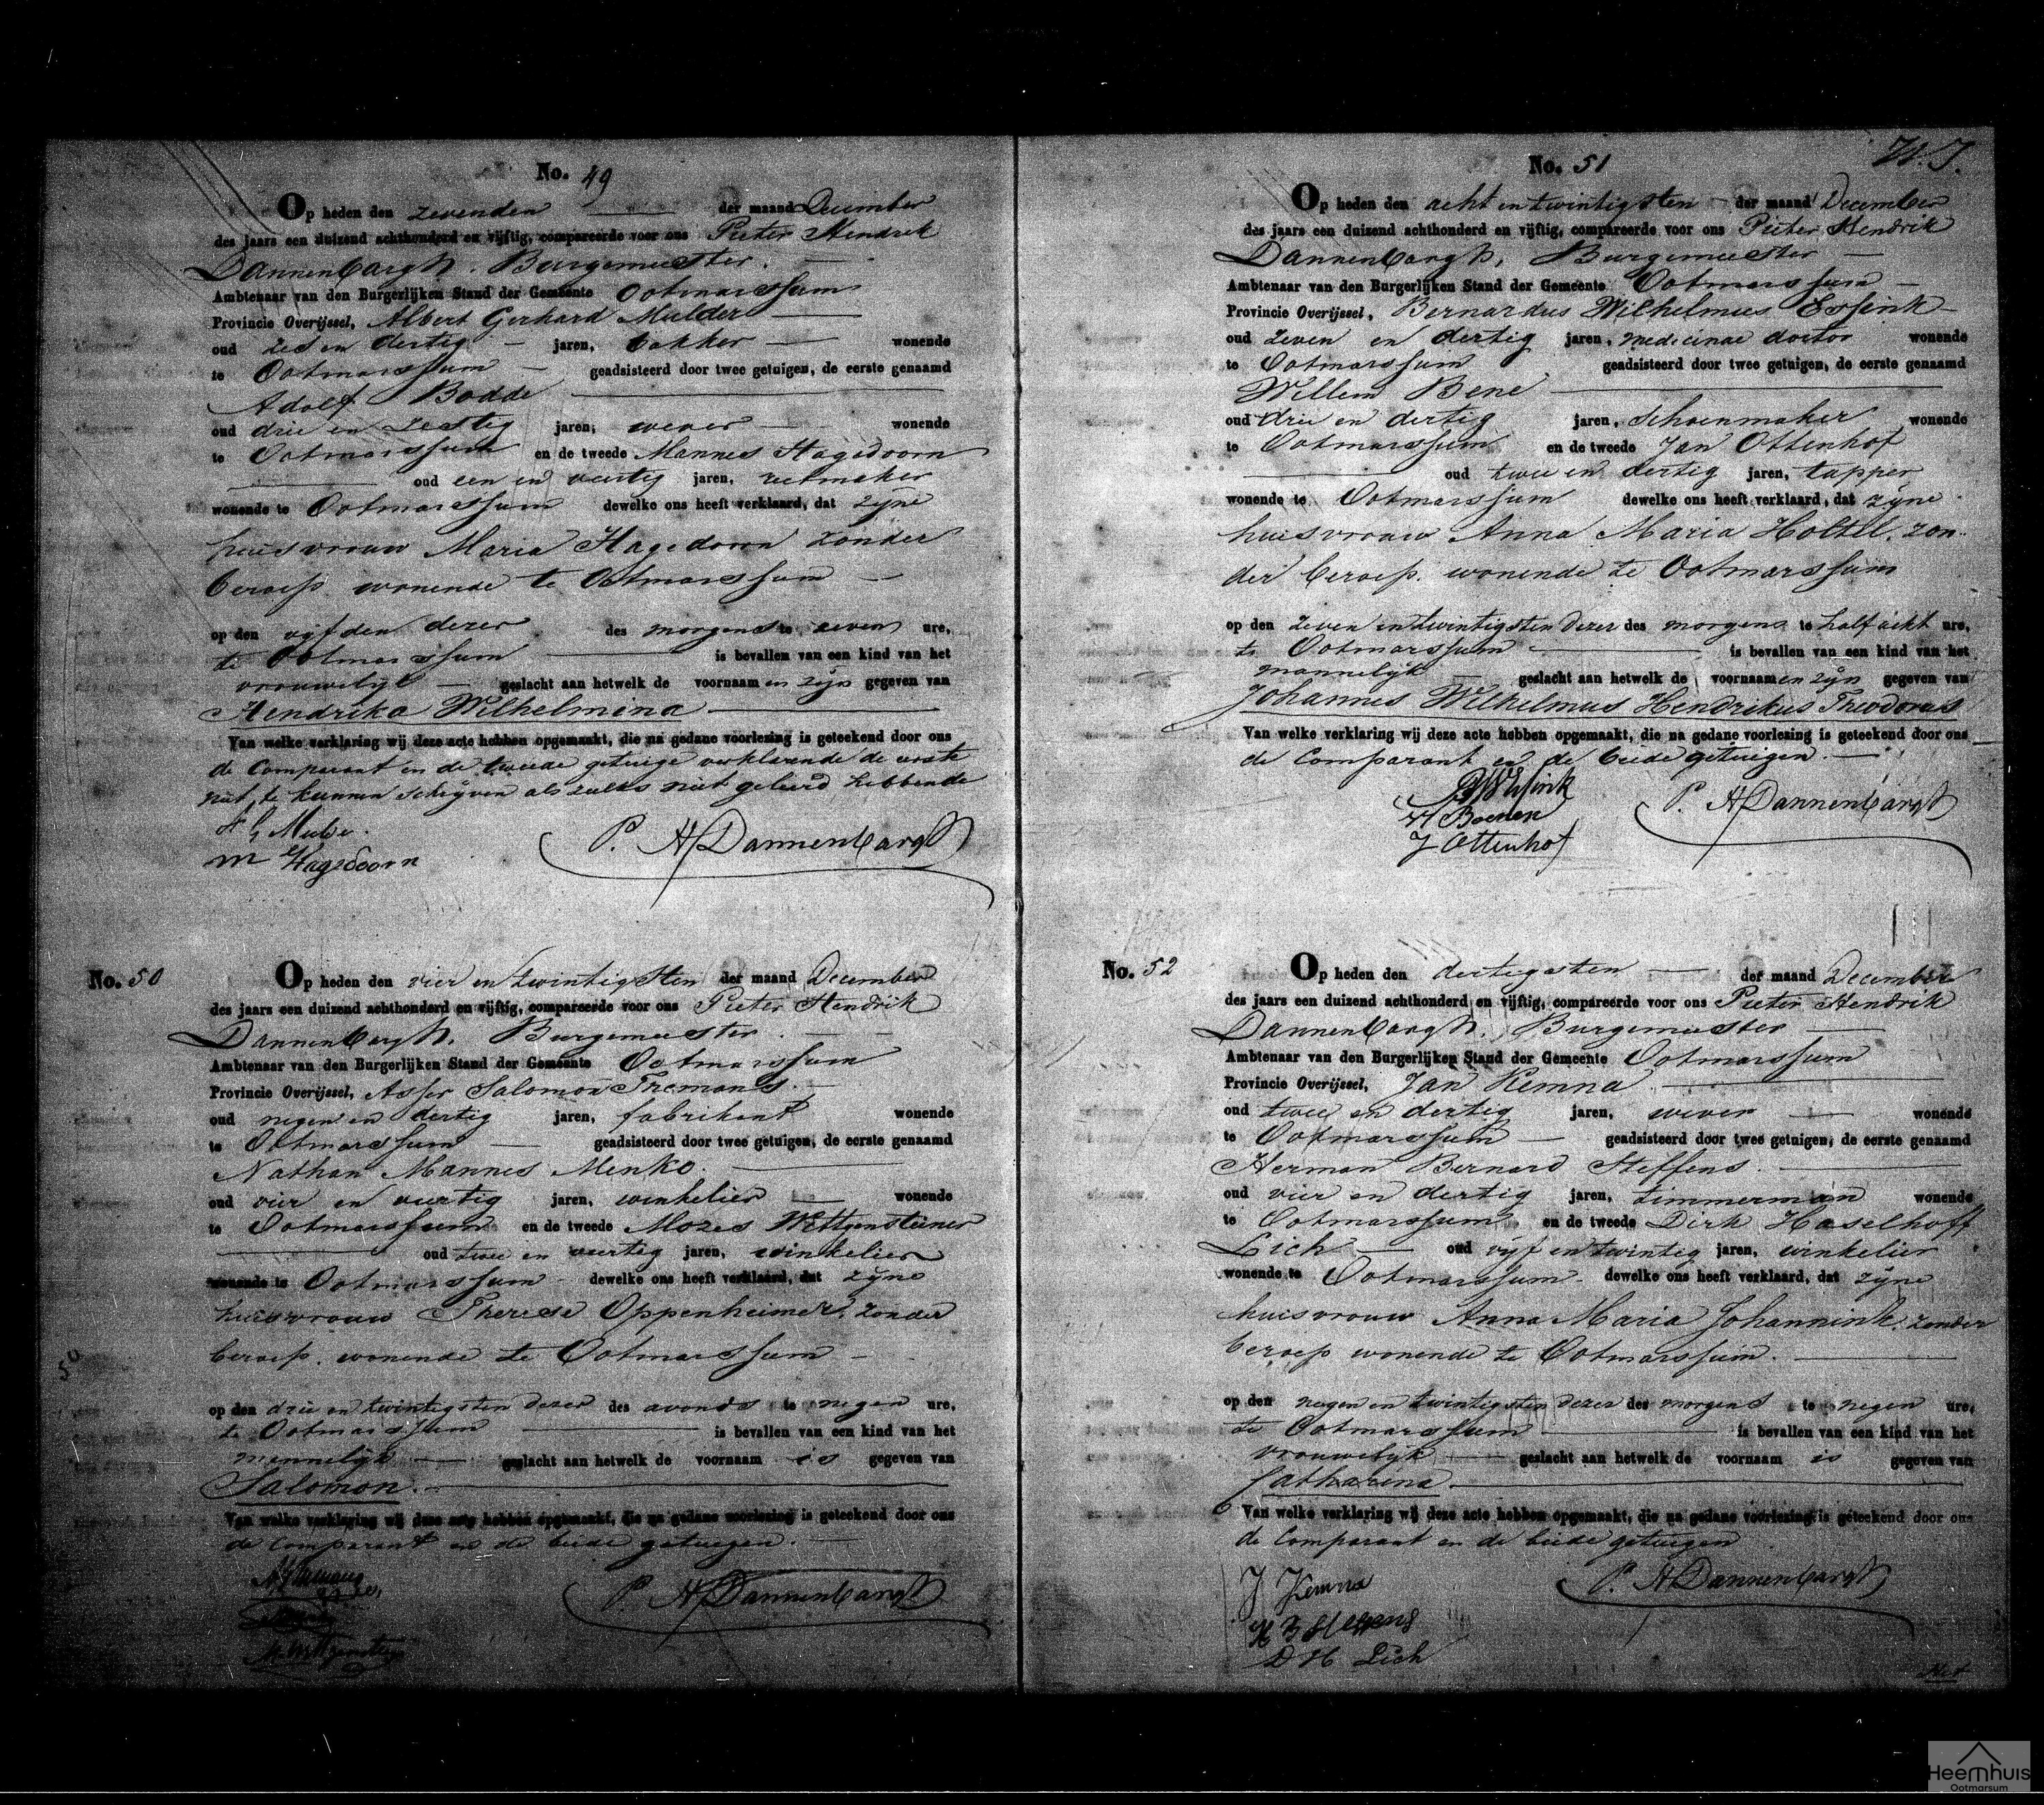 No. 49
Op heden den zevenden der maand December
des jaars een duizend achthonderd en vijftig, compareerde voor ons Pieter Hendrik
Dannenbargh, Burgemeester.
Ambtenaar van den Burgerlijken Stand der Gemeente Ootmarssum
Provincie Overijssel, Albert Gerhard Mulder
oud zes en dertig jaren, bakker wonende
te Ootmarssum geadsisteerd door twee getuigen, de eerste genaamd
Adolf Bodde
oud drie en zestig jaren, wever wonende
te Ootmarssum en de tweede Mannes Hagedoorn
oud een en veertig jaren, zeetmaker
wonende te Ootmarssum dewelke ons heeft verklaard, dat zyne
huisvrouw Maria Hagedoorn zonder
beroep wonende te Ootmarssum
op den vyfden dezer des morgens te zeven ure,
te Ootmarssum is bevallen van een kind van het
vrouwelyk geslacht aan hetwelk de voornaamen zyn gegeven van
Hendrika Wilhelmina
Van welke verklaring wij deze acte hebben opgemaakt, die na gedane voorlezing is geteekend door ons
de Comparant en de tweede getuige verklarende de eerste
niet te kunnen schryven als zulks niet geleerd hebbende
M Hagedoorn
P. H Dannenbargh
No. 50
Op heden den vier en twintigsten der maand December
des jaars een duizend achthonderd en vijftig, compareerde voor ons Pieter Hendrik
Dannenbargh, Burgemeester.
Ambtenaar van den Burgerlijken Stand der Gemeente Ootmarssum
Provincie Overijssel, Asser Salomon Fremans
oud negen en dertig jaren, fabrikant wonende
te Ootmarssum geadsisteerd door twee getuigen, de eerste genaamd
Nathan Mannes Menko.
oud vier en veertig jaren, winkelier wonende
te Ootmarssum en de tweede Mozes Wittgensteiner
oud twee en veertig jaren, winkelier
wonende te Ootmarssum dewelke ons heeft verklaard, dat zyne
huisvrouw Therese Oppenheimer, zonder
beroep, wonende te Ootmarssum
50
op den drie en twintigsten dezer des avonds te negen ure,
te Ootmarssum is bevallen van een kind van het
mannelyk geslacht aan hetwelk de voornaam is gegeven van
Salomon.
Van welke verklaring wij deze acte hebben opgemaakt, die na gedane voorlezing is geteekend door ons
de Comparant en de beide getuigen.
P. H Dannenbargh
No. 51
Op heden den acht en twintigsten der maand December
des jaars een duizend achthonderd en vijftig, compareerde voor ons Pieter Hendrik
Dannenbargh, Burgemeester
Ambtenaar van den Burgerlijken Stand der Gemeente Ootmarssum
Provincie Overijssel, Bernardus Wilhelmus Essink
oud zeven en dertig jaren, medicinae doctor wonende
te Ootmarssum geadsisteerd door twee getuigen, de eerste genaamd
Willem Bene
oud drie en dertig jaren, schoenmaker wonende
te Ootmarssum en de tweede Jan Ottenhof
oud twee en dertig jaren, tapper
wonende te Ootmarssum dewelke ons heeft verklaard, dat zyne
huisvrouw Anna Maria Holtel, zon-
der beroep, wonende te Ootmarssum
op den zeven en twintigsten dezer des morgens te half acht ure,
te Ootmarssum is bevallen van een kind van het
mannelyk geslacht aan hetwelk de voornaamen zyn gegeven van
Johannes Wilhelmus Hendrikus Theodorus
Van welke verklaring wij deze acte hebben opgemaakt, die na gedane voorlezing is geteekend door ons
de Comparant en de beide getuigen.
BWEssink
J Ottenhof
P. H Dannenbargh
No. 52
Op heden den dertigsten der maand December
des jaars een duizend achthonderd en vijftig, compareerde voor ons Pieter Hendrik
Dannenbargh, Burgemeester
Ambtenaar van den Burgerlijken Stand der Gemeente Ootmarssum
Provincie Overijssel, Jan Kemna
oud twee en dertig jaren, wever wonende
te Ootmarssum geadsisteerd door twee getuigen, de eerste genaamd
Herman Bernard Steffens.
oud vier en dertig jaren, timmerman wonende
te Ootmarssum en de tweede Dirk Haselhoff
Lich oud vyf en twintig jaren, winkelier
wonende te Ootmarssum dewelke ons heeft verklaard, dat zyne
huisvrouw Anna Maria Johannink, zonder
beroep wonende te Ootmarssum.
op den negen en twintigsten dezer des morgens te negen ure,
te Ootmarssum is bevallen van een kind van het
vrouwelyk geslacht aan hetwelk de voornaam is gegeven van
Catharina
Van welke verklaring wij deze acte hebben opgemaakt, die na gedane voorlezing is geteekend door ons
de Comparant en de beide getuigen
J Kemna
H B Steffens
D H Lich
P. H Dannenbargh
Heemhuis
Ootmarsum